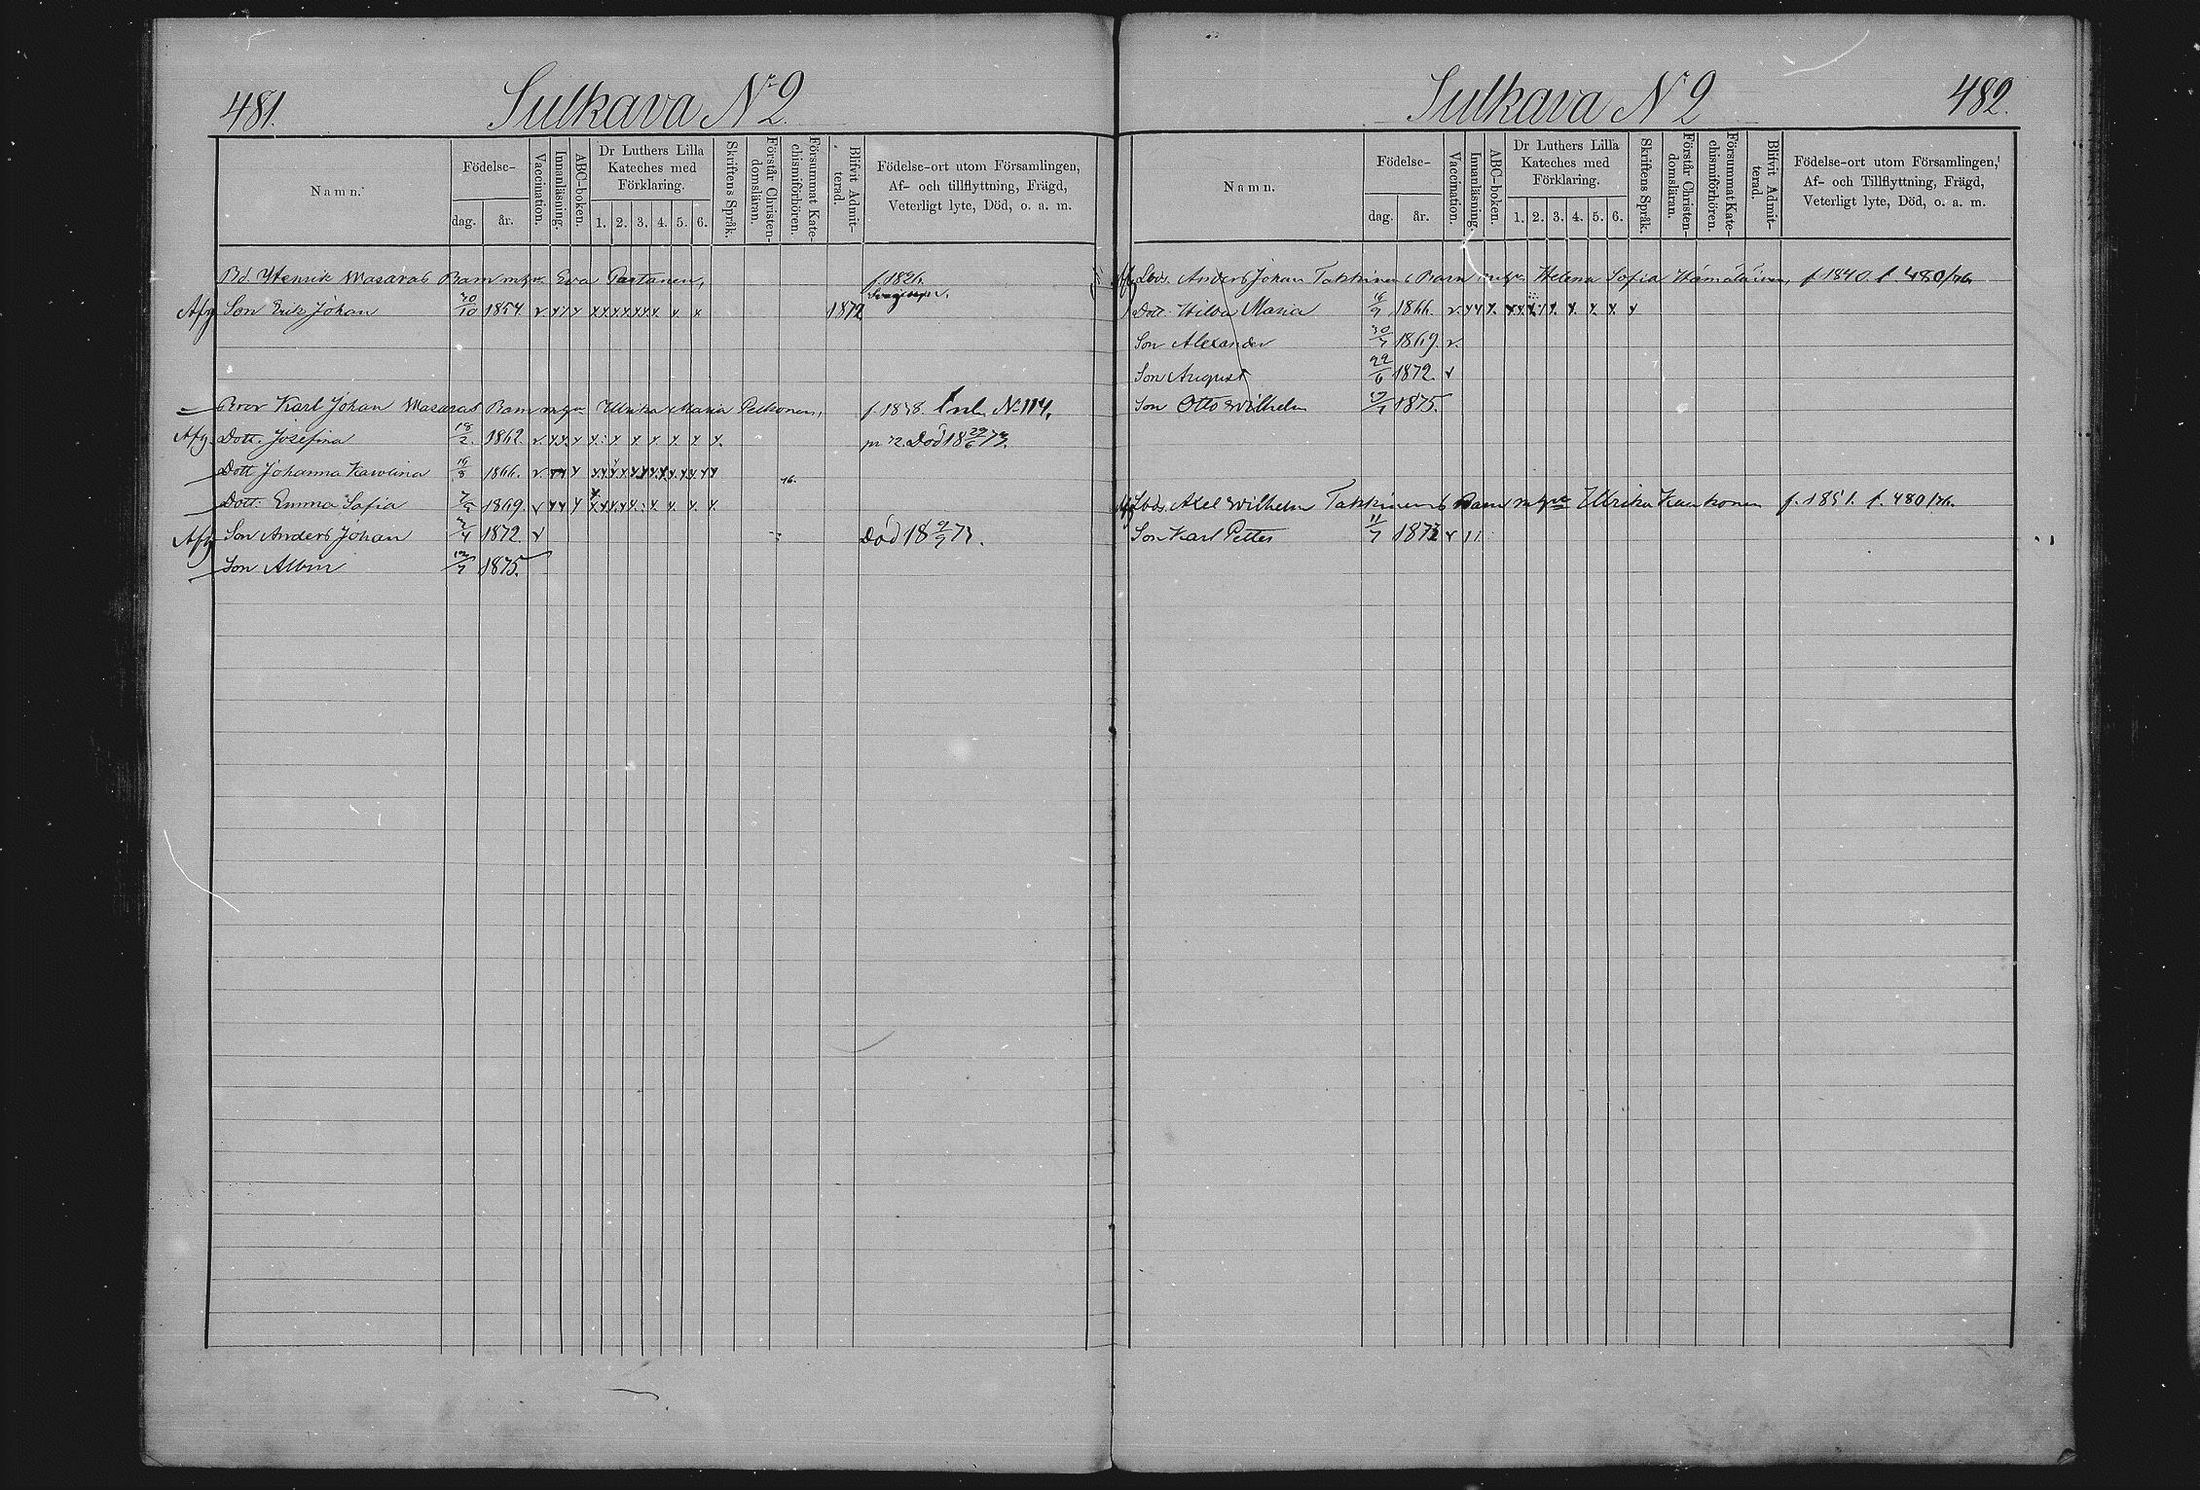 481.
Sulkava No 2.
Namn.
Födelse-
dag.
år.
Vaccination.
Innanläsning.
ABC-boken.
Dr Luthers Lilla
Kateches med
Förklaring.
1. 2. 3. 4. 5. 6.
Skriftens Språk.
Förstår Christen-
domsläran.
Försummat Kate-
chismiförhören.
Blifvit Admit-
terad.
Födelse-ort utom Församlingen,
Af- och tillflyttning, Frägd,
Veterligt lyte, Död, o. a. m.
Bd. Henrik Masaras Barn m hu Eva Partanen, f. 1826.
Afg Son Erik Johan 30/10 1854 v 1872
Bror Karl Johan Masaras Barn m hu Ulrika Maria Pelkonen, f. 1838. Inh. No 114.
Afg. Dott. Josefina 18/2. 1862. v Död 18 29/6 73.
Dott Johanna Karolina 16/8 1866. v
Dott. Emma Sofia 1869. v
Afg Son Anders Johan 1872. v Död 18 9/7 73.
Son Albin 1875.
Sulkava No 2
482.
Namn.
Födelse-
dag.
år.
Vaccination.
Innanläsning.
ABC-boken.
Dr Luthers Lilla
Kateches med
Förklaring.
1. 2. 3. 4. 5. 6.
Skriftens Språk.
Förstår Christen-
domsläran.
Försummat Kate-
chismiförhören.
Blifvit Admit-
terad.
Födelse-ort utom Församlingen,
Af- och Tillflyttning, Frägd,
Veterligt lyte, Död, o. a. m.
Anders Johan Takkinens Barn Helena Sofia Hämäläinen, f. 1840. f. 480/76
Dott. Hilda Maria 1866. v
Son Alexander 30/7 1869. v.
Son August 22/6 1872. v
Son Otto Wilhelm 1875.
Axel Wilhelm Takkinens Barn m hu Ulrika Kaukonen f. 1851. f. 480/76.
Son Karl Petter 11/7 1873 v